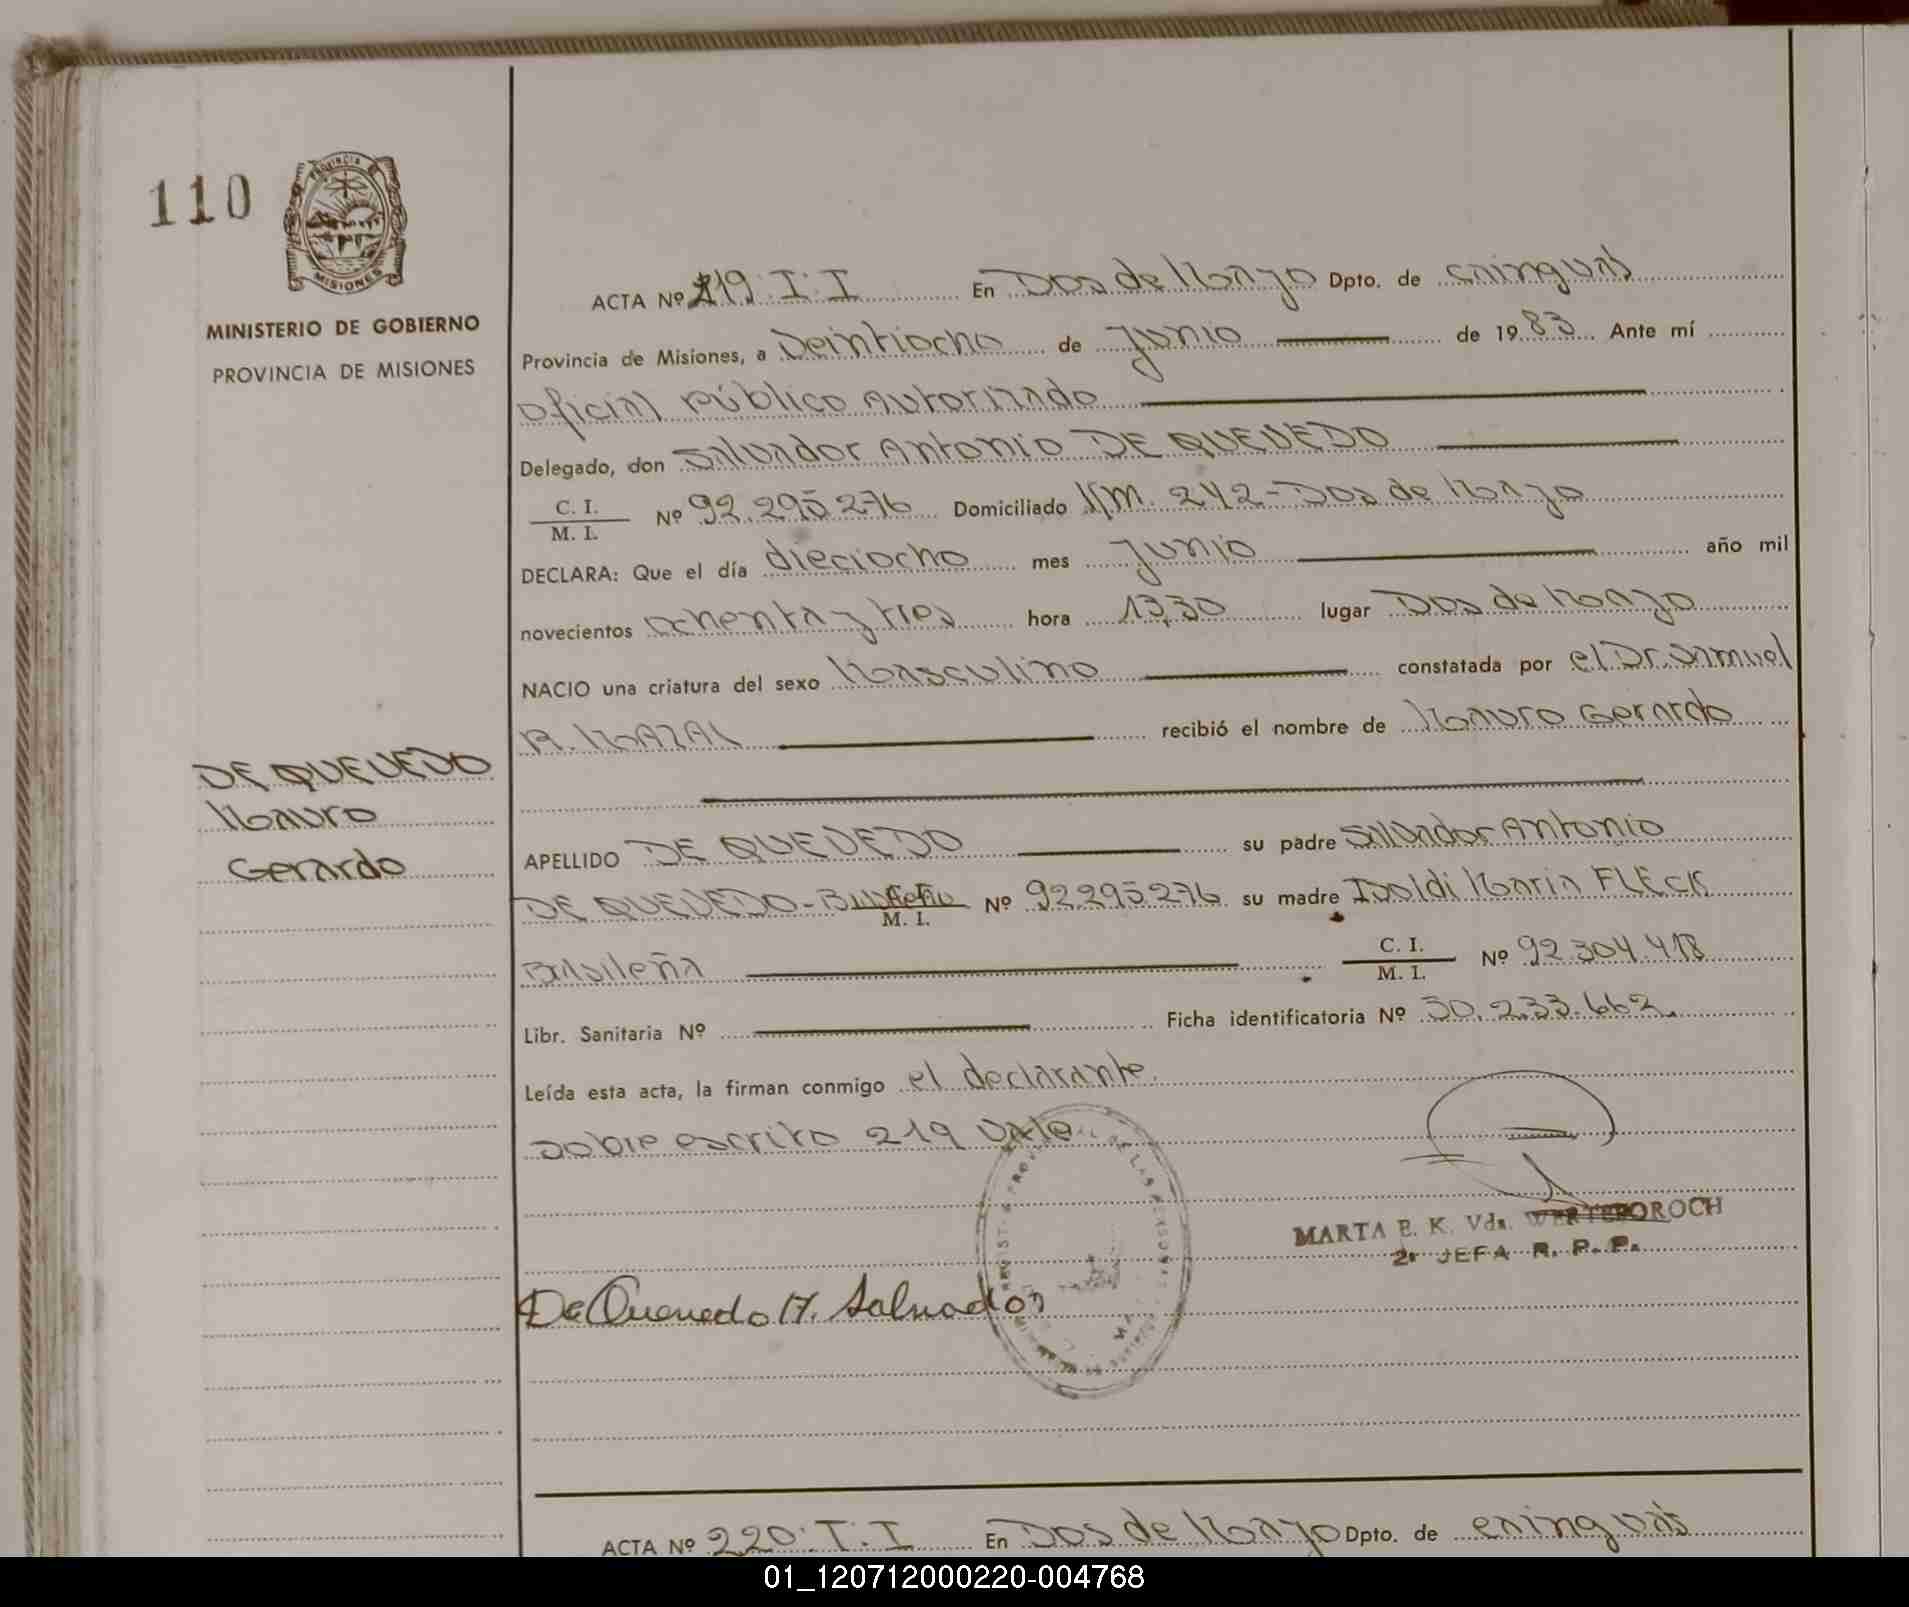 110
PROVINCIA
MISIONES
MINISTERIO DE GOBIERNO
PROVINCIA DE MISIONES
ACTA Nº 219. T. I En Dos de Mayo Dpto. de Cainguás
Provincia de Misiones, a Veintiocho de Junio de 1983. Ante mí
Oficial Público Autorizado
Delegado, don Salvador Antonio DE QUEVEDO
C. I.
M. I. Nº 92.295276 Domiciliado Km. 242 - Dos de Mayo
DECLARA: Que el día dieciocho mes Junio año mil
novecientos ochenta y tres hora 13,30 lugar Dos de Mayo
NACIO una criatura del sexo Masculino constatada por el Dr. Samuel
A. MAZAL recibió el nombre de Mauro Gerardo
DE QUEVEDO
Mauro
Gerardo
APELLIDO DE QUEVEDO su padre Salvador Antonio
DE QUEVEDO - M. I. Nº 92295276 su madre Isoldi Maria FLECK
Brasileña C. I.
M. I. Nº 92.304.418
Libr. Sanitaria Nº Ficha identificatoria Nº 30.233.662.
Leída esta acta, la firman conmigo el declarante.
sobre escrito 219 Vale
MARTA E. K. Vda. WERTEBOROCH
2ª JEFA R. P. P.
De Quevedo A. Salvador
ACTA Nº 220. T. I En Dos de Mayo Dpto. de Cainguás
01_120712000220-004768